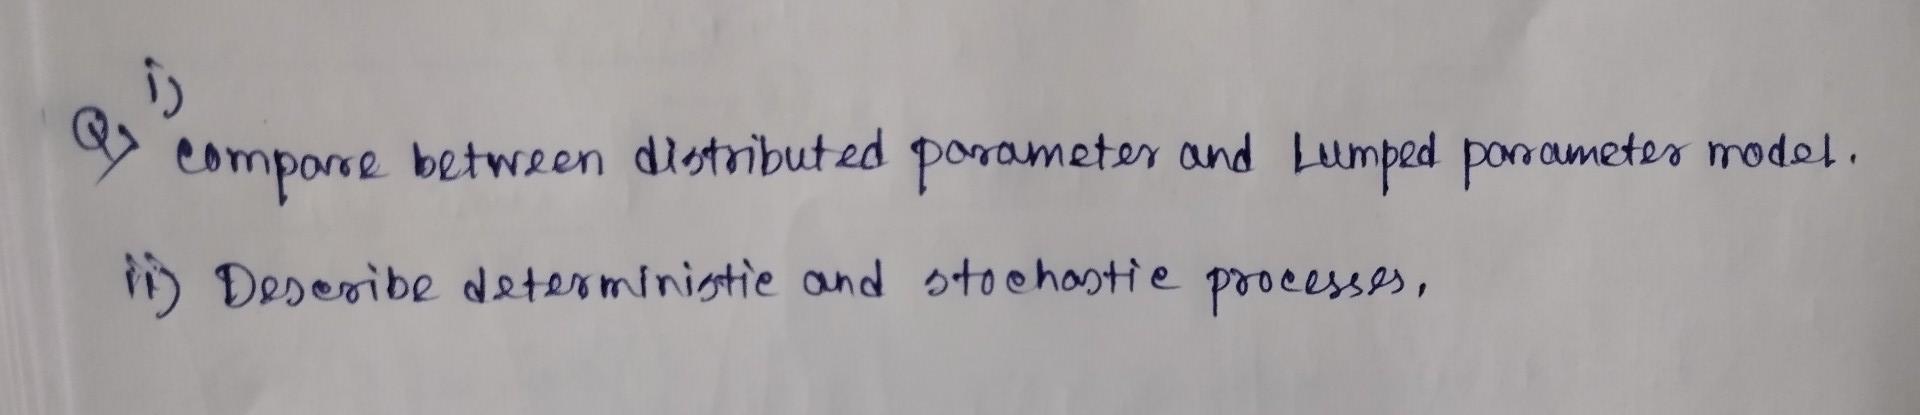 Q> i)
compare between distributed parameter and Lumped parameter model.
ii) Describe deterministic and stochastic processes,